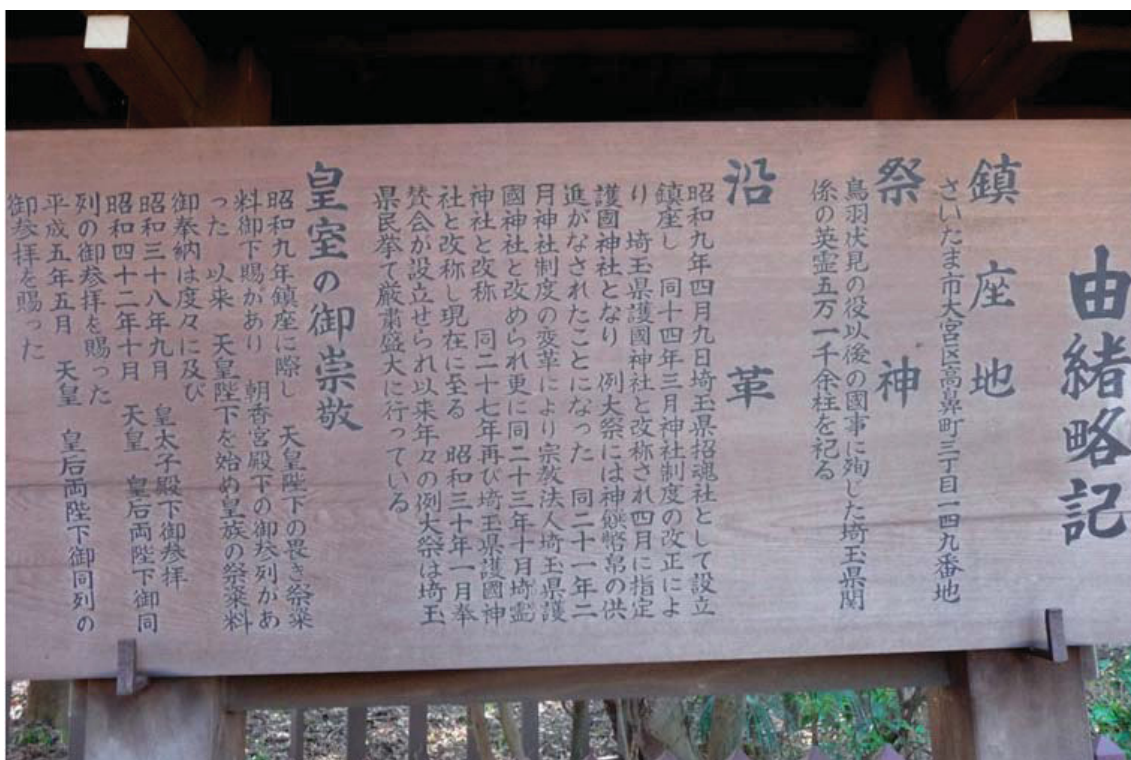 由緒略記
鎮座地
さいたま市大宮区高鼻町三丁目一四九番地
祭神
鳥羽伏見の役以後の國事に殉した埼玉県関
係の英霊五万一千余柱を祀る
沿革
昭和九年四月九日埼玉県招魂社として設立
鎮座し 同十四年三月神社制度の改正によ
り 埼玉県護國神社と改称され四月に指定
護國神社となり 例大祭には神饌幣帛の供
進がなされたことになった 同二十一年二
月神社制度の変革により宗教法人埼玉県護
國神社と改められ更に同二十三年十月埼霊
神社と改称 同二十七年再び埼玉県護國神
社と改称し現在に至る 昭和三十年一月奉
賛会が設立せられ以来年々の例大祭は埼玉
県民挙て厳粛盛大に行っている
皇室の御崇敬
昭和九年鎮座に際し 天皇陛下の畏き祭粢
料御下賜があり 朝香宮殿下の御参列があ
った 以来 天皇陛下を始め皇族の祭粢料
御奉納は度々に及び
昭和三十八年九月 皇太子殿下御参拝
昭和四十二年十月 天皇 皇后両陛下御同
列の御参拝を賜った
平成五年五月 天皇 皇后両陛下御同列の
御参拝を賜った